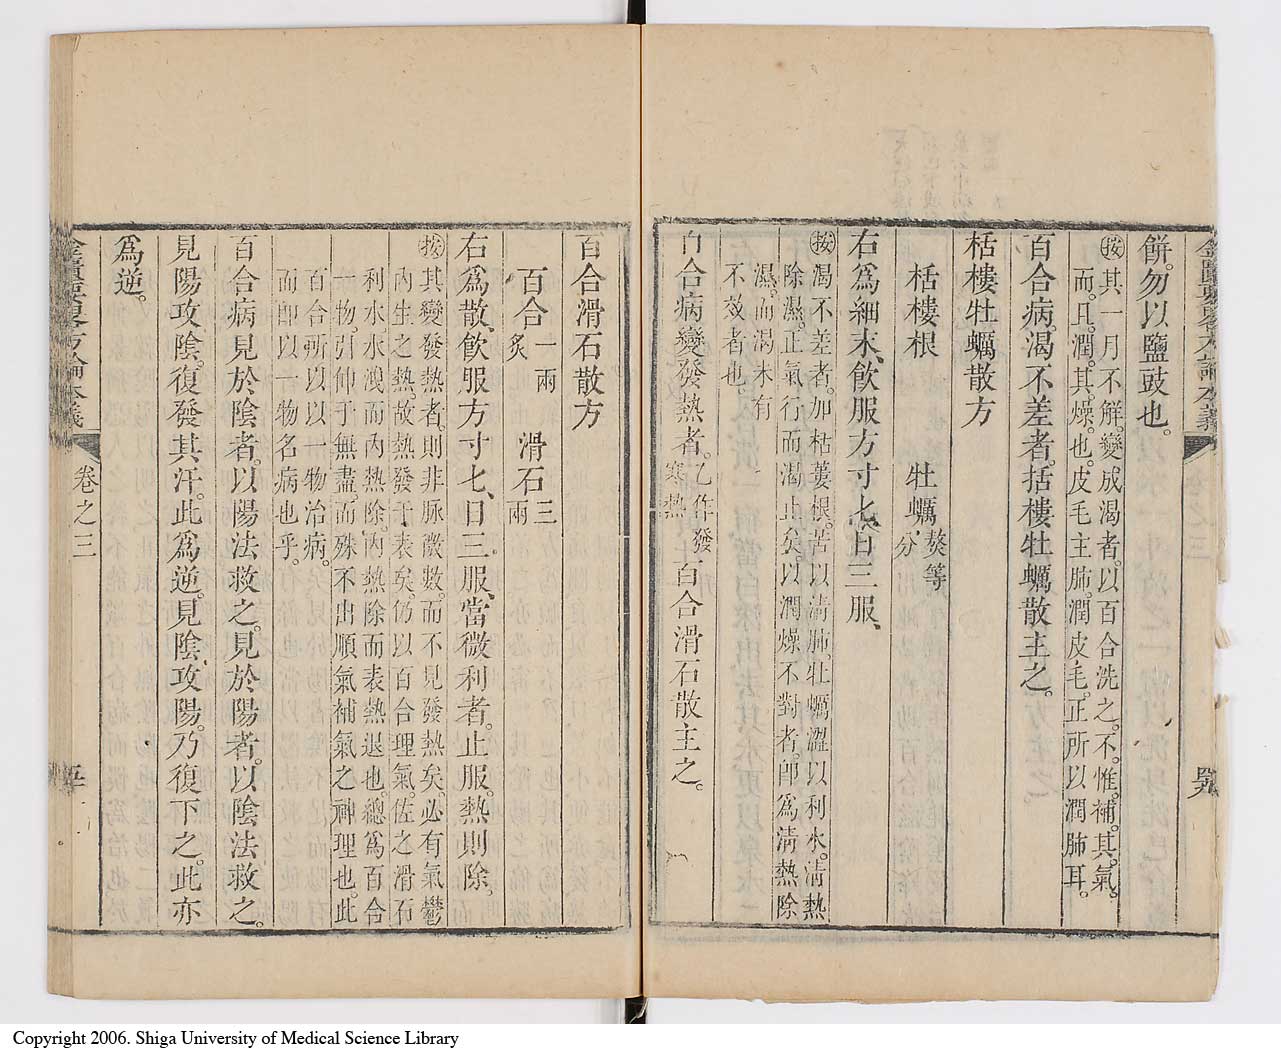 餅。勿以鹽豉也。
㊟按其一月不解。變成渴者。以百合洗之。不。惟。補。其。氣。
而。且。潤。其。燥。也。皮毛主肺。潤皮毛。正所以潤肺耳。
百合病。渴不差者。括樓牡蠣散主之。
栝樓牡蠣散方
栝樓根 牡蠣熬等分
右爲細末、飲服方寸匕、日三服、
按渴不差者。加枯蔞根。苦以清肺。牡蠣澀以利水。清熱
除濕。正氣行而渴止矣。以潤燥不對者。即爲清熱除
濕。而渴未有
不效者也。
百合病變發熱者。乙作發寒熱百合滑石散主之。
百合滑石散方
百合一兩炙 滑石三兩
右爲散、飲服方寸匕、日三服、當微利者。止服。熱則除。
按其變發熱者。則非脉微數。而不見發熱矣。必有氣鬱
內生之熱。故熱發于表矣。仍以百合理氣。佐之滑石
利水。水洩而內熱除。內熱除而表熱退也。總爲百合
一物。引伸于無盡。而殊不出順氣補氣之神理也。此
百合所以以一物治病。
而即以一物名病也乎。
百合病見於陰者。以陽法救之。見於陽者。以陰法救之。
見陽攻陰。復發其汗。此爲逆。見陰攻陽。乃復下之。此亦
爲逆。
金匱要略方論本義
卷之三